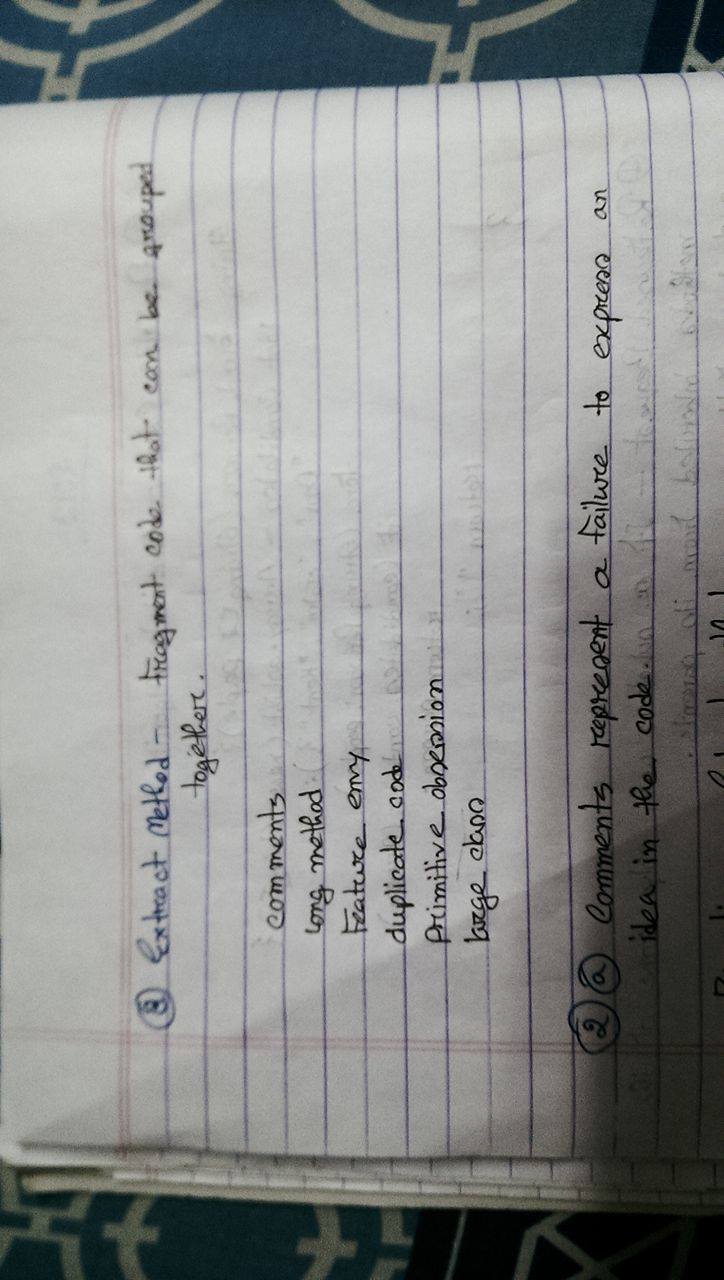 ⑧ Extract Method - fragment code that can be grouped
together.
comments
long method
Feature envy
duplicate code
primitive obsession
large class
② ⓐ Comments represent a failure to express an
idea in the code.